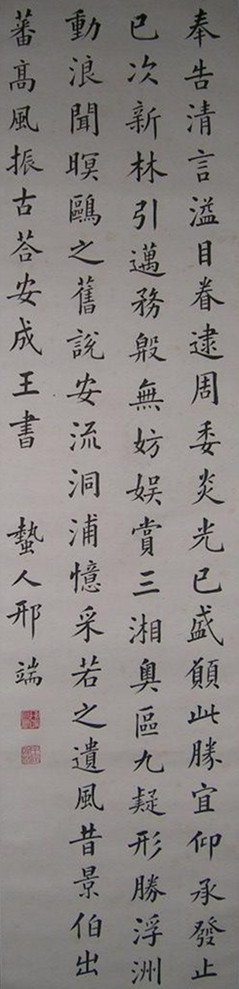 奉告清言溢目眷逮周委炎光已盛願此勝宜仰承發止
已次新林引邁務殷無妨娛賞三湘奧區九疑形勝浮洲
動浪聞暝鷗之舊說安流洞浦憶采若之遺風昔景伯出
蕃高風振古荅安成王書
蟄人邢端